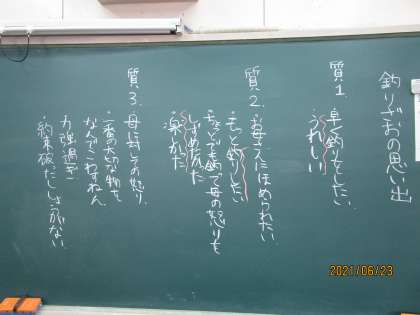 釣りざおの思い出
質1. 早く釣りをしたい。
・うれしい
質2. ・お母さんにほめられたい。
・もっと釣りたい
ちょっとでも釣って母の怒りを
しずめたかった
・楽かた
質3. 母に対しての怒り。
・一番の大切な物を
なんでこわすねん
力強過ぎ
・約束破たししょうがない
2021/06/23